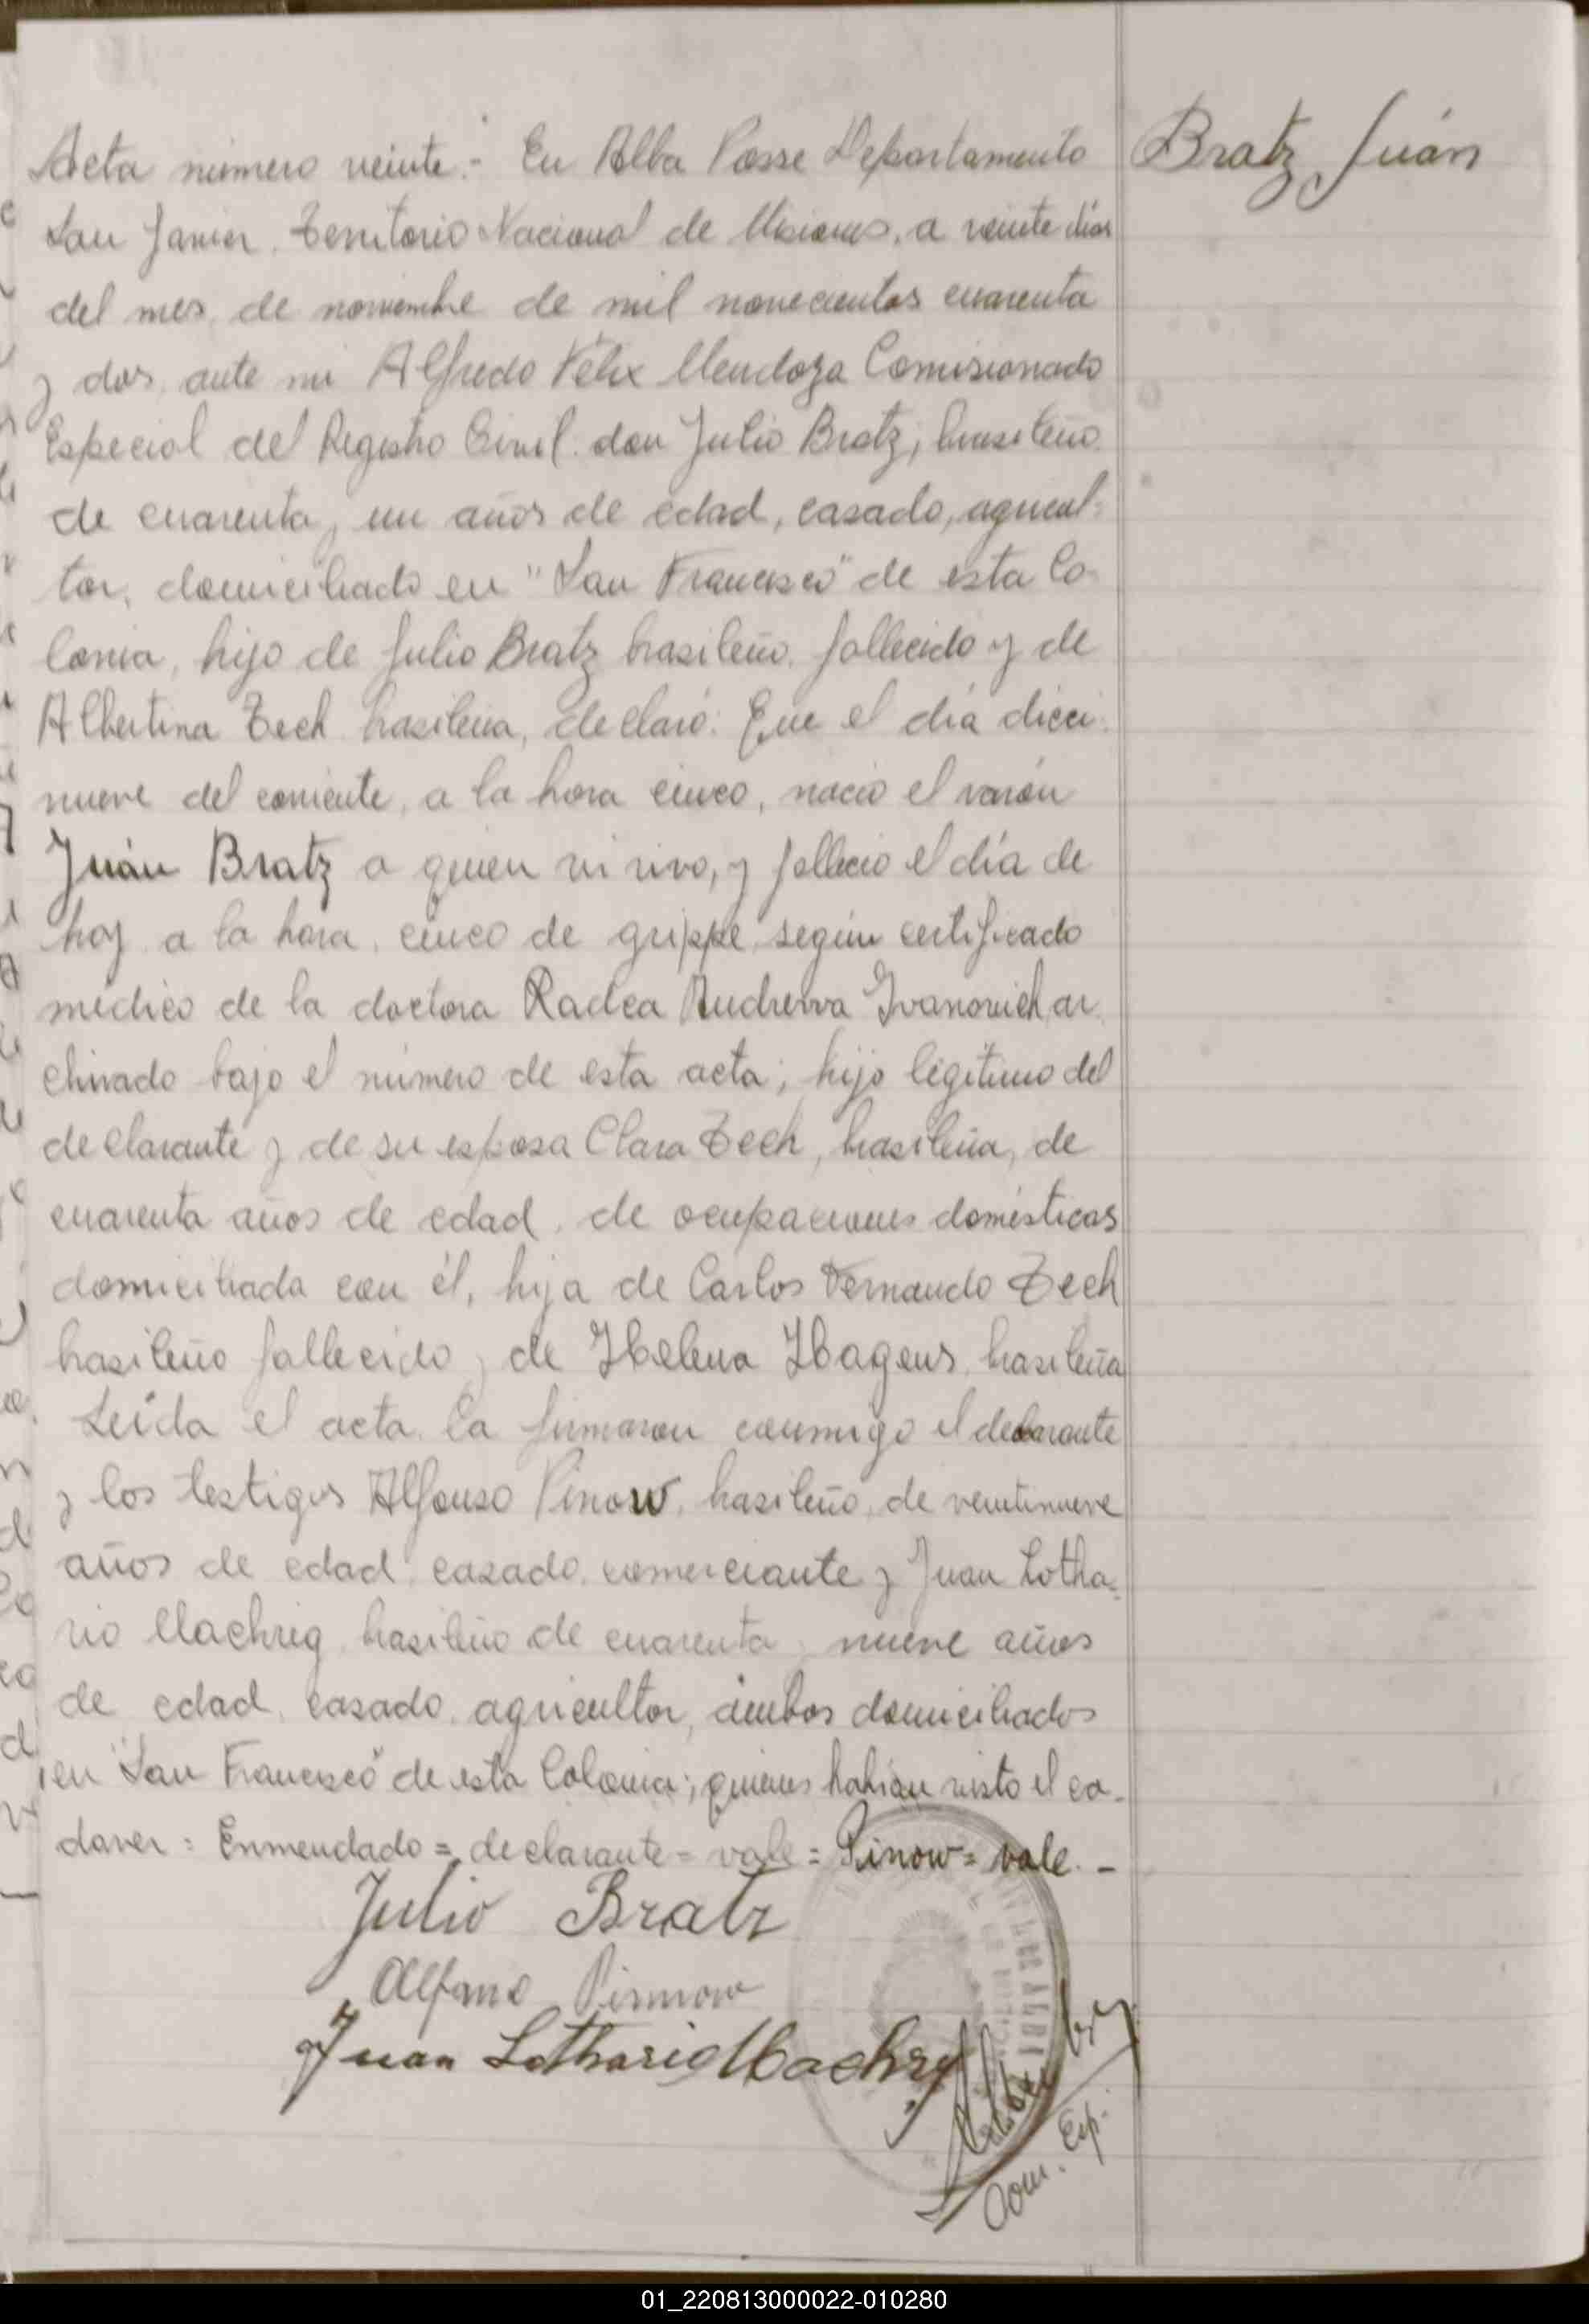 Acta número veinte.- En Alba Posse Departamento
San Javier, Territorio Nacional de Misiones, a veinte días
del mes de noviembre de mil novecientos cuarenta
y dos, ante mi Alfredo Félix Mendoza Comisionado
Especial del Registro Civil don Julio Bratz, brasileño
de cuarenta y un años de edad, casado, agricul-
tor, domiciliado en "San Francisco" de esta Co-
lonia, hijo de Julio Bratz brasileño, fallecido y de
Albertina Zech brasileña, declaró: Que el día dieci-
nueve del corriente, a la hora cinco, nació el varón
Juán Bratz a quien vi vivo, y falleció el día de
hoy a la hora cinco de grippe, según certificado
médico de la doctora Radea Ivanovich ar
chivado bajo el número de esta acta; hijo legítimo del
declarante y de su esposa Clara Zech, brasileña, de
cuarenta años de edad, de ocupaciones domésticas
domiciliada con él, hija de Carlos Fernando Zech
brasileño fallecido y de Helena Hagens, brasileña
Leída el acta la firmaron conmigo el declarante
y los testigos Alfonso Pinow, brasileño, de veintinueve
años de edad, casado, comerciante y Juan Lotha-
rio Machrig brasileño de cuarenta y nueve años
de edad, casado, agricultor, ámbos domiciliados
en "San Francisco" de esta Colonia; quienes habían visto el ca-
daver = Enmendado = declarante = vale = Pinow = vale. -
Julio Bratz
Alfonso Pinnow
Juan Lothario Machry
Com. Esp.
Bratz Juán
01_220813000022-010280